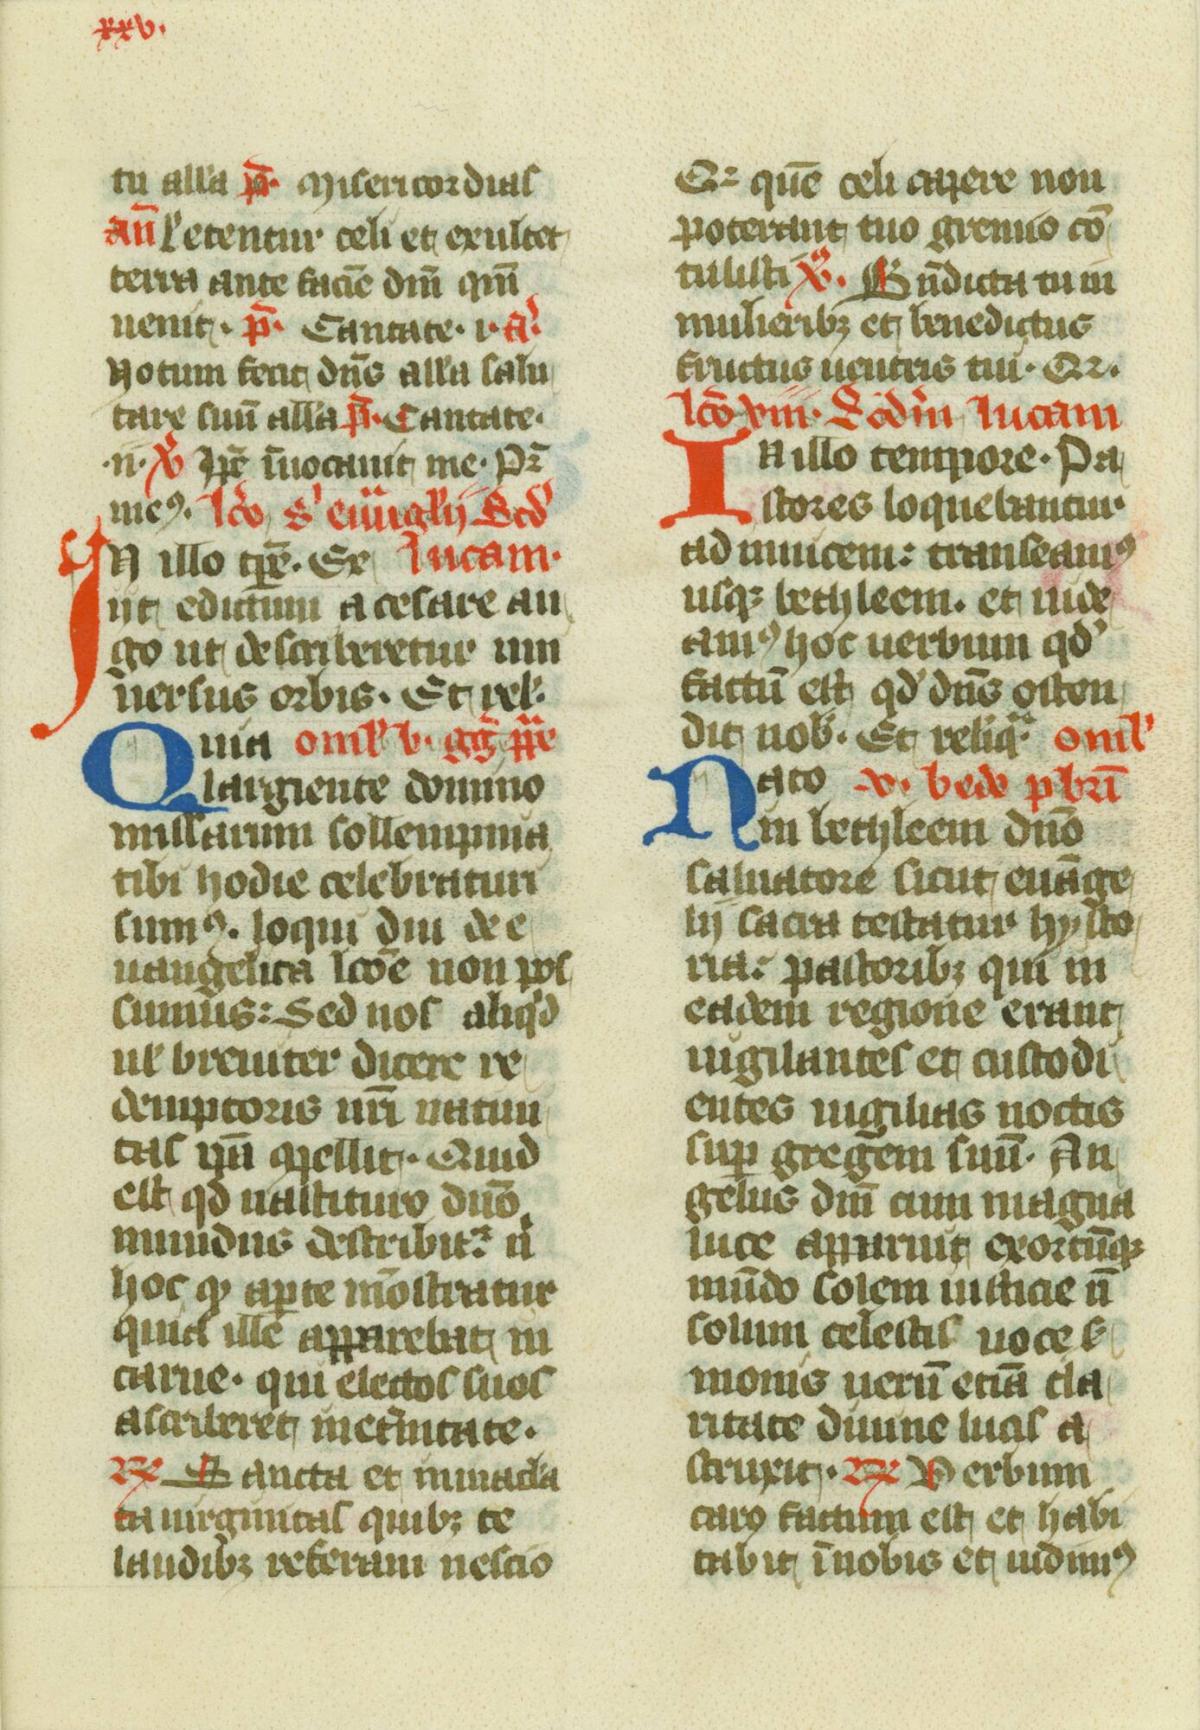 xxv.
tu alla p̄. Misericordias
añ Letentur celi et exultet
terra ante faciē dñi qm̄
uenit. p̄. Cantate. i. a͛
Notum fecit dñs alla salu
tare suū alla p̄. Cantate.
.ii. v̾ Ipse īuocauit me. Pr̄
meꝰ. lc̄o s' euūglij Scd'
In illo tp̄e. Ex lucam.
iit edictum a cesare au
go ut describeretur uni
uersus orbis. Et rel'.
Quia omil' b. gḡ pp̄e
largiente domino
missarum sollempnia
tibi hodie celebraturi
sumꝰ. loqui diu de e
uangelica lcōe non pos
sumus: Sed nos aliqd
ul' breuiter dicere re
demptoris nr̄i natiui
tas ip̄a ꝯpellit. Quid
est qd nascituro dn̄o
mundus describit᷑ n̄
hoc ꝙ aꝑte mōstratur
quia ille apparebat in
carne. qui electos suos
ascriberet in et͛nitate.
R̵ Sancta et inmacla
ta uirginitas quibꝫ te
laudibꝫ referam nescio
Qꝛ quē celi capere non
poterant tuo gremio cō
tulisti v̾. Bn̄dicta tu in
mulieribꝫ et benedictus
fructus uentris tui. Qꝛ.
lc̄o viii. Scd̄m lucam
In illo tempore. Pa
stores loquebantur
ad inuicem: transeamꝰ
usqꝫ bethleem. et uide
amꝰ hoc uerbum qd'
factū est qd' dn̄s osten
dit nob'. Et reliqᵃ. omil'
Nato v. bede p̄bri
in bethleem dn̄o
saluatore sicut euāge
lij sacra testatur hysto
ria: pastoribꝫ qui in
eadem regione erant
uigilantes et custodi
entes uigilias noctis
suꝑ gregem suū. An
gelus dn̄i cum magna
luce apparuit exortūqꝫ
mūdo solem iusticie n̄
solum celestis uoce s͛
monis uerū etiā cla
ritate diuine lucis a
struxit. R̵ Verbum
caro factum est et habi
tabit ī nobis et uidimꝰ